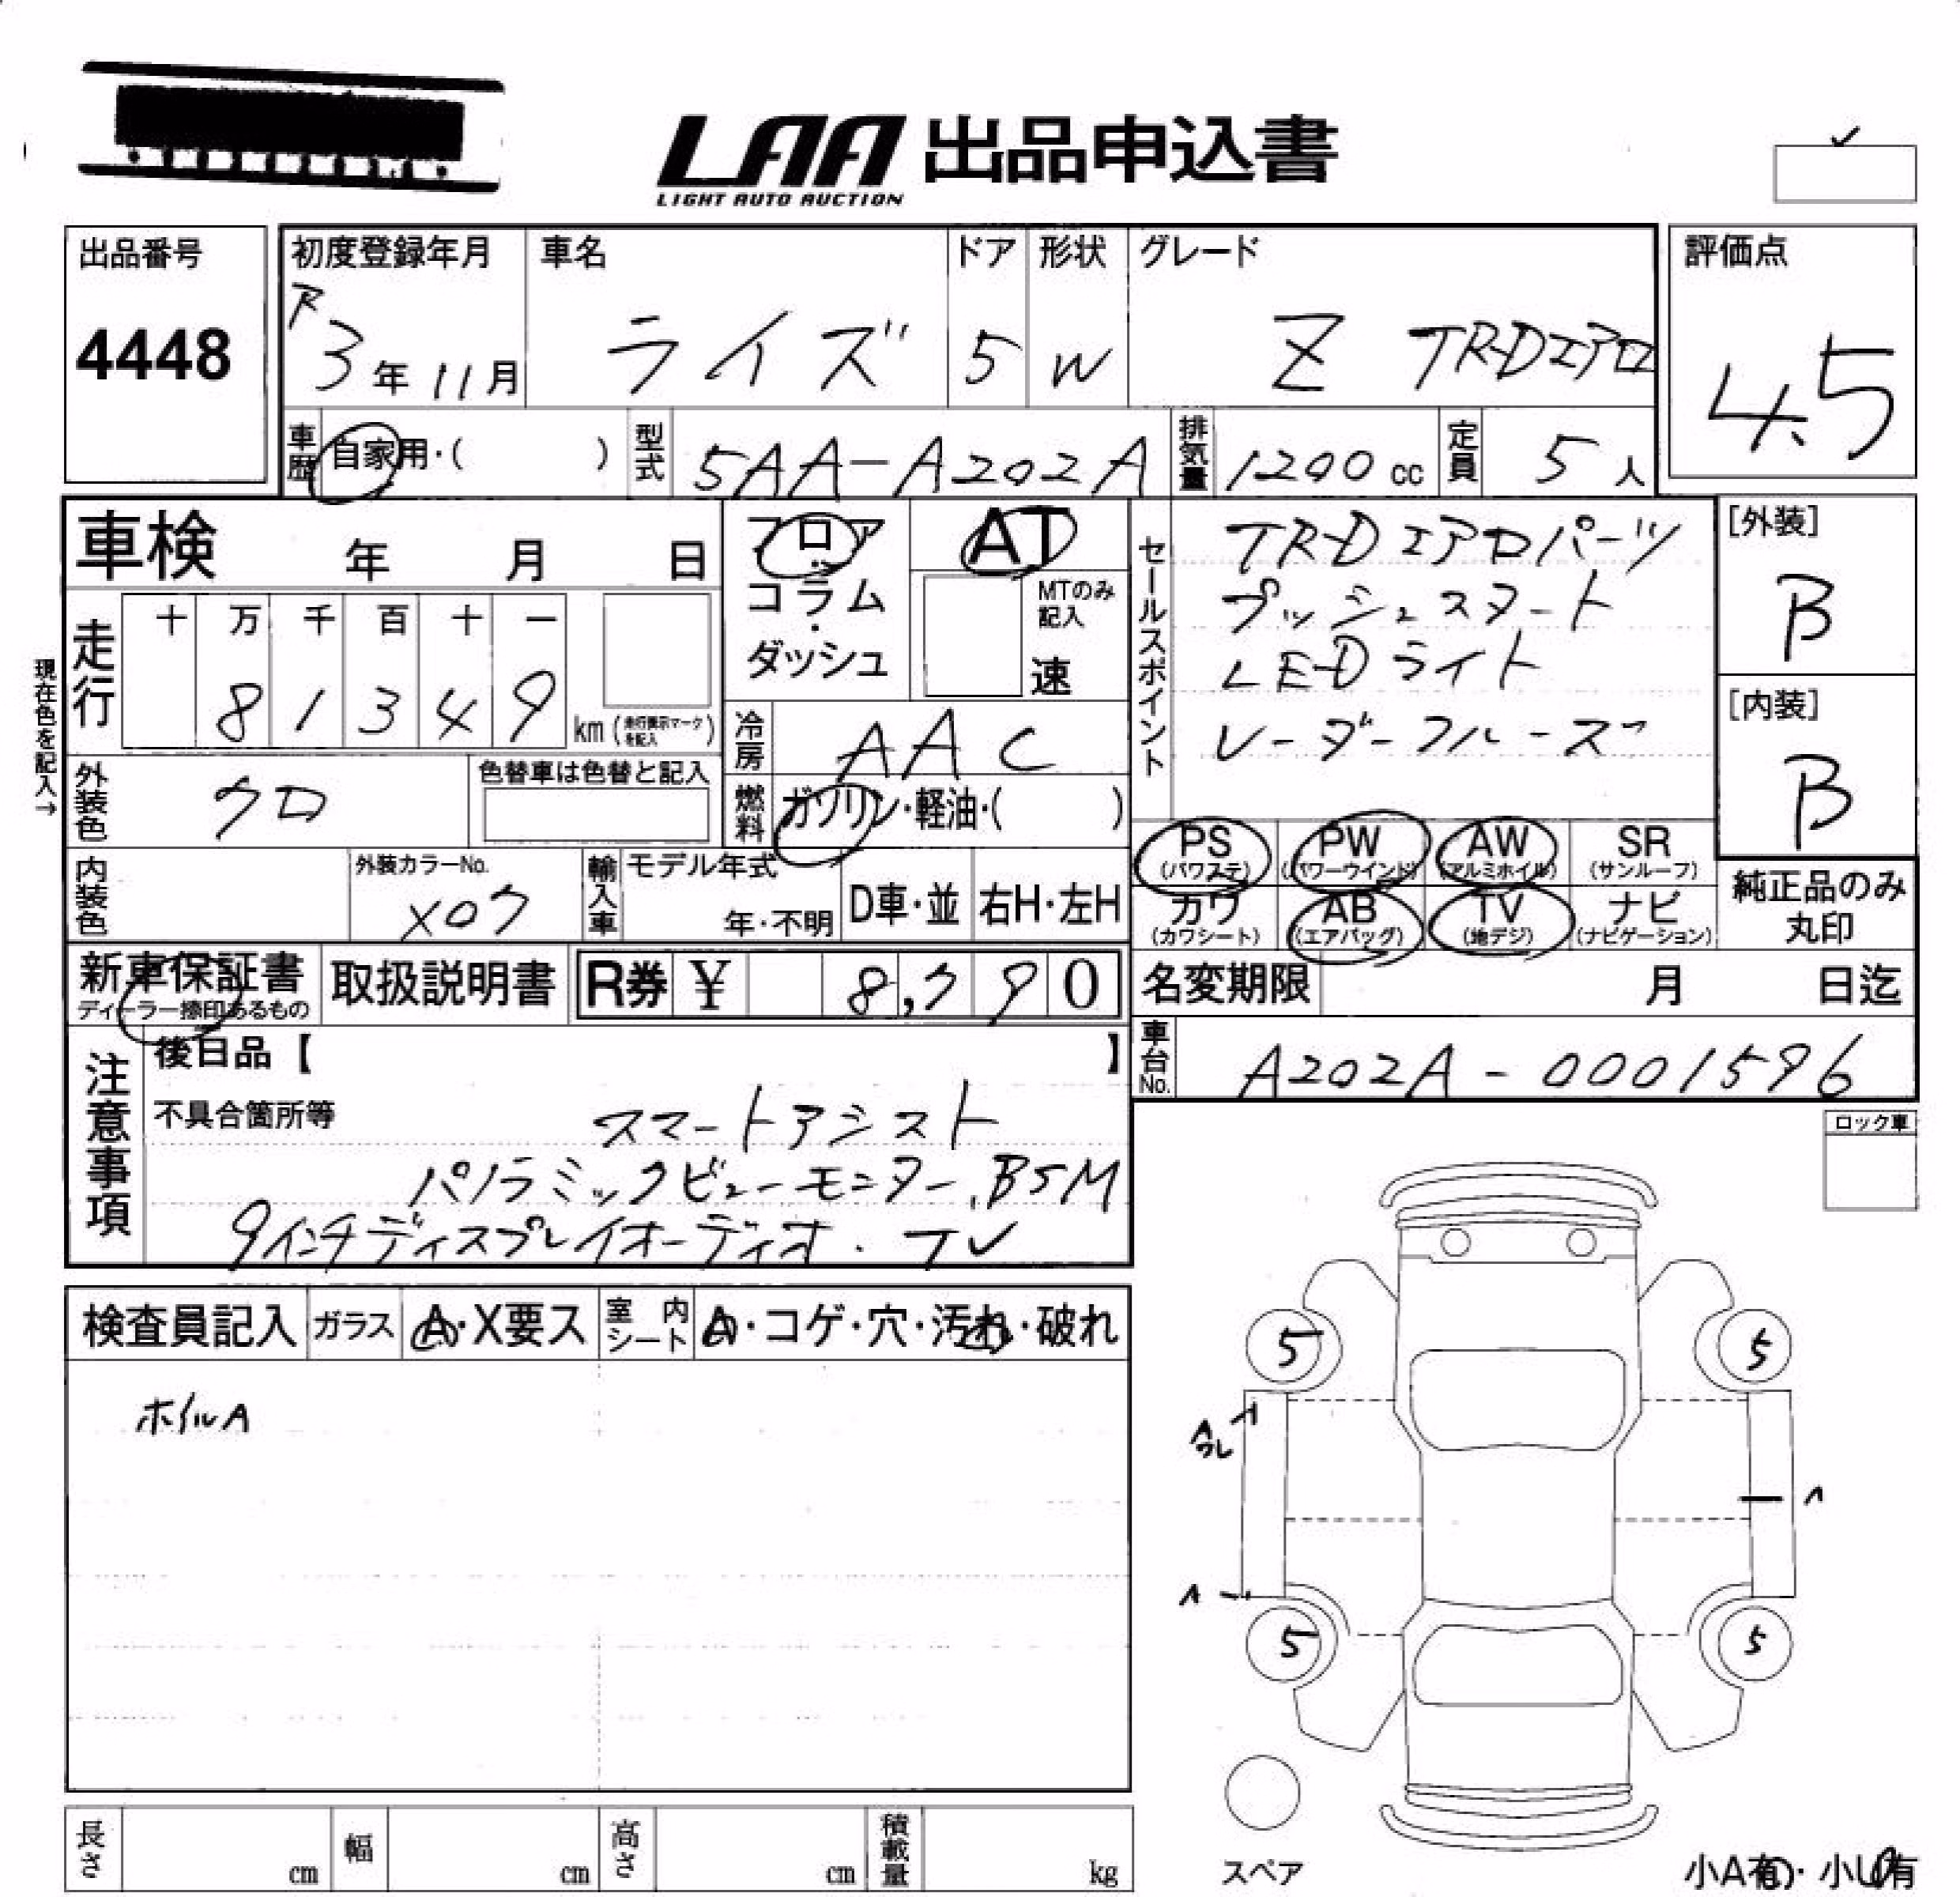 LAA 出品申込書
LIGHT AUTO AUCTION
出品番号
4448
初度登録年月
R
3年11月
車名
ライズ
ドア
5
形状
W
グレード
Z TRDエアロ
評価点
4.5
車歴
自家用・( )
型式
5AA-A202A
排気量
1200cc
定員
5人
車検 年 月 日
フロア
コラム
・
ダッシュ
AT
MTのみ
記入
速
セールスポイント
TRDエアロパーツ
プッシュスタート
LEDライト
レーダークルーズ
[外装]
B
[内装]
B
現在色を記入→
走行
十 万 千 百 十 一
8 1 3 4 9
km (走行表示マークを記入)
冷房
AAC
燃料
ガソリン・軽油・( )
外装色
クロ
色替車は色替と記入
内装色
外装カラーNo.
X07
輸入車
モデル年式
年・不明
D車・並
右H・左H
PS
(パワステ)
PW
(パワーウインド)
AW
(アルミホイル)
SR
(サンルーフ)
カワ
(カワシート)
AB
(エアバッグ)
TV
(地デジ)
ナビ
(ナビゲーション)
純正品のみ
丸印
新車保証書
ディーラー捺印あるもの
取扱説明書
R券 ¥ 8,790
名変期限 月 日迄
車台No.
A202A-0001596
注意事項
後日品【 】
不具合箇所等
スマートアシスト
パノラミックビューモニター、BSM
9インチディスプレイオーディオ・TV
ロック車
検査員記入
ガラス
A・X要ス
室内
シート
A・コゲ・穴・汚れ・破れ
ホイルA
5
5
A
A
A
5
5
スペア
長さ cm
幅 cm
高さ cm
積載量 kg
小A有・小U有